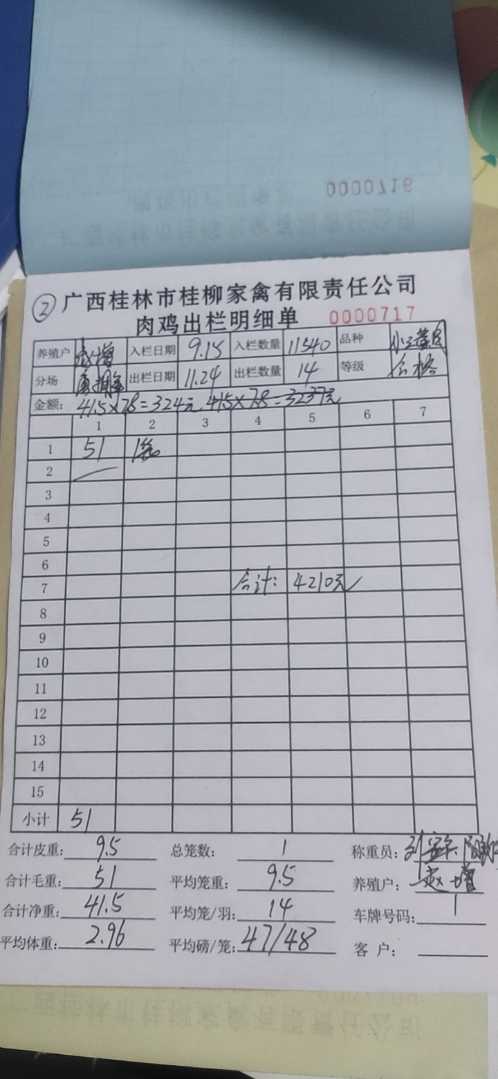 0000716
② 广西桂林市桂柳家禽有限责任公司
肉鸡出栏明细单 0000717
养殖户 赵增 入栏日期 9.15 入栏数量 11540 品种
分场 出栏日期 11.24 出栏数量 14 等级 合格
金额: 41.5×7.8=324元. 415×7.8=3237元
1 2 3 4 5 6 7
1 51 1笼
2
3
4
5
6
7 合计: 4210元
8
9
10
11
12
13
14
15
小计 51
合计皮重: 9.5 总笼数: 1 称重员:
合计毛重: 51 平均笼重: 9.5 养殖户: 赵增
合计净重: 41.5 平均笼/羽: 14 车牌号码:
平均体重: 2.96 平均磅/笼: 47/48 客 户: